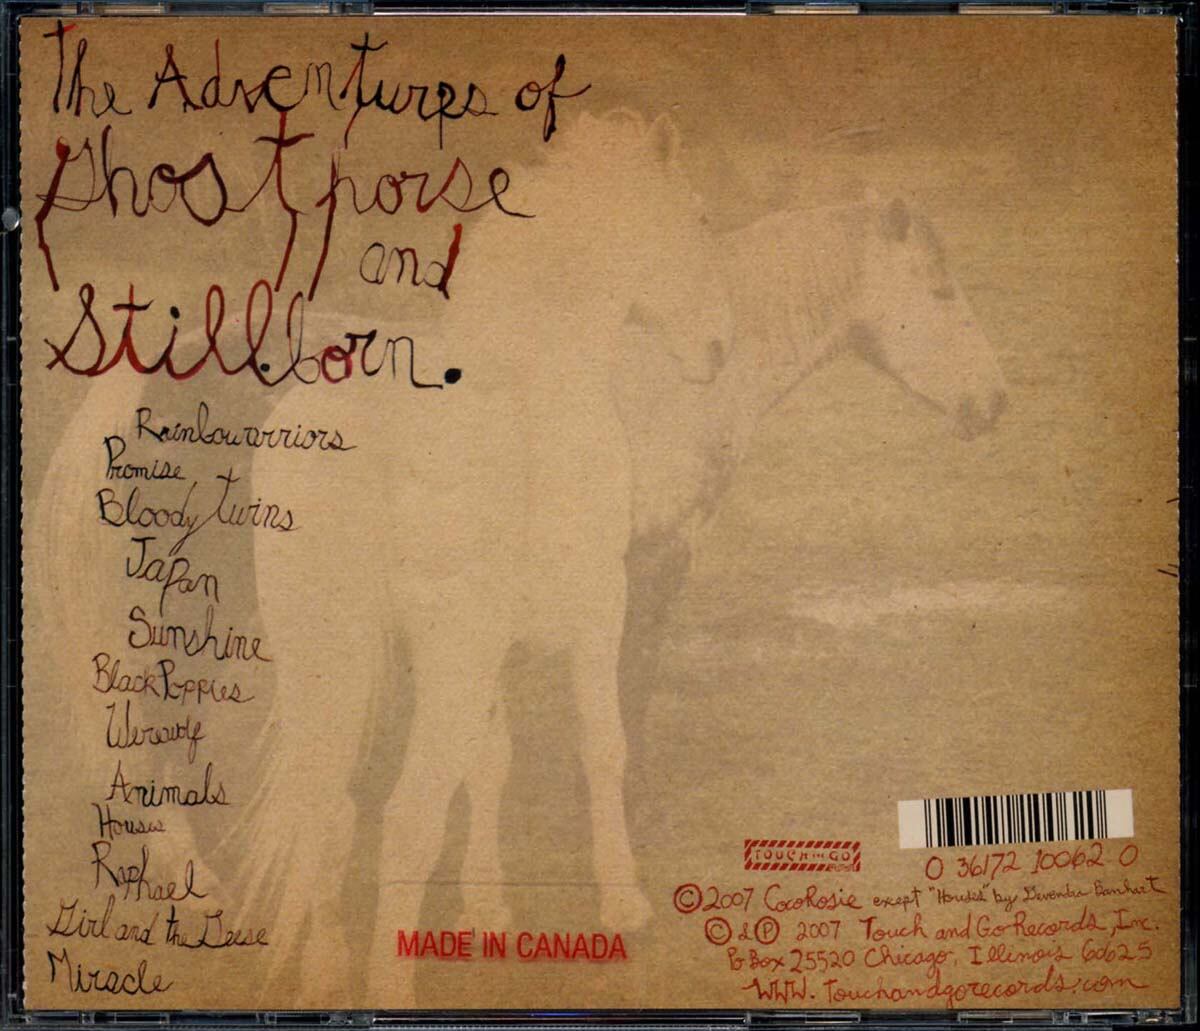 The Adventures of
Ghosthorse
and
Stillborn.
Rainbowarriors
Promise
Bloody Twins
Japan
Sunshine
Black Poppies
Werewolf
Animals
Houses
Raphael
Girl and the Geese
Miracle
MADE IN CANADA
TOUCH AND GO
0 36172 10062 0
©2007 CocoRosie except "Houses" by Devendra Banhart
© & ℗ 2007 Touch and Go Records, Inc.
Po Box 25520 Chicago, Illinois 60625
WWW.Touchandgorecords.com